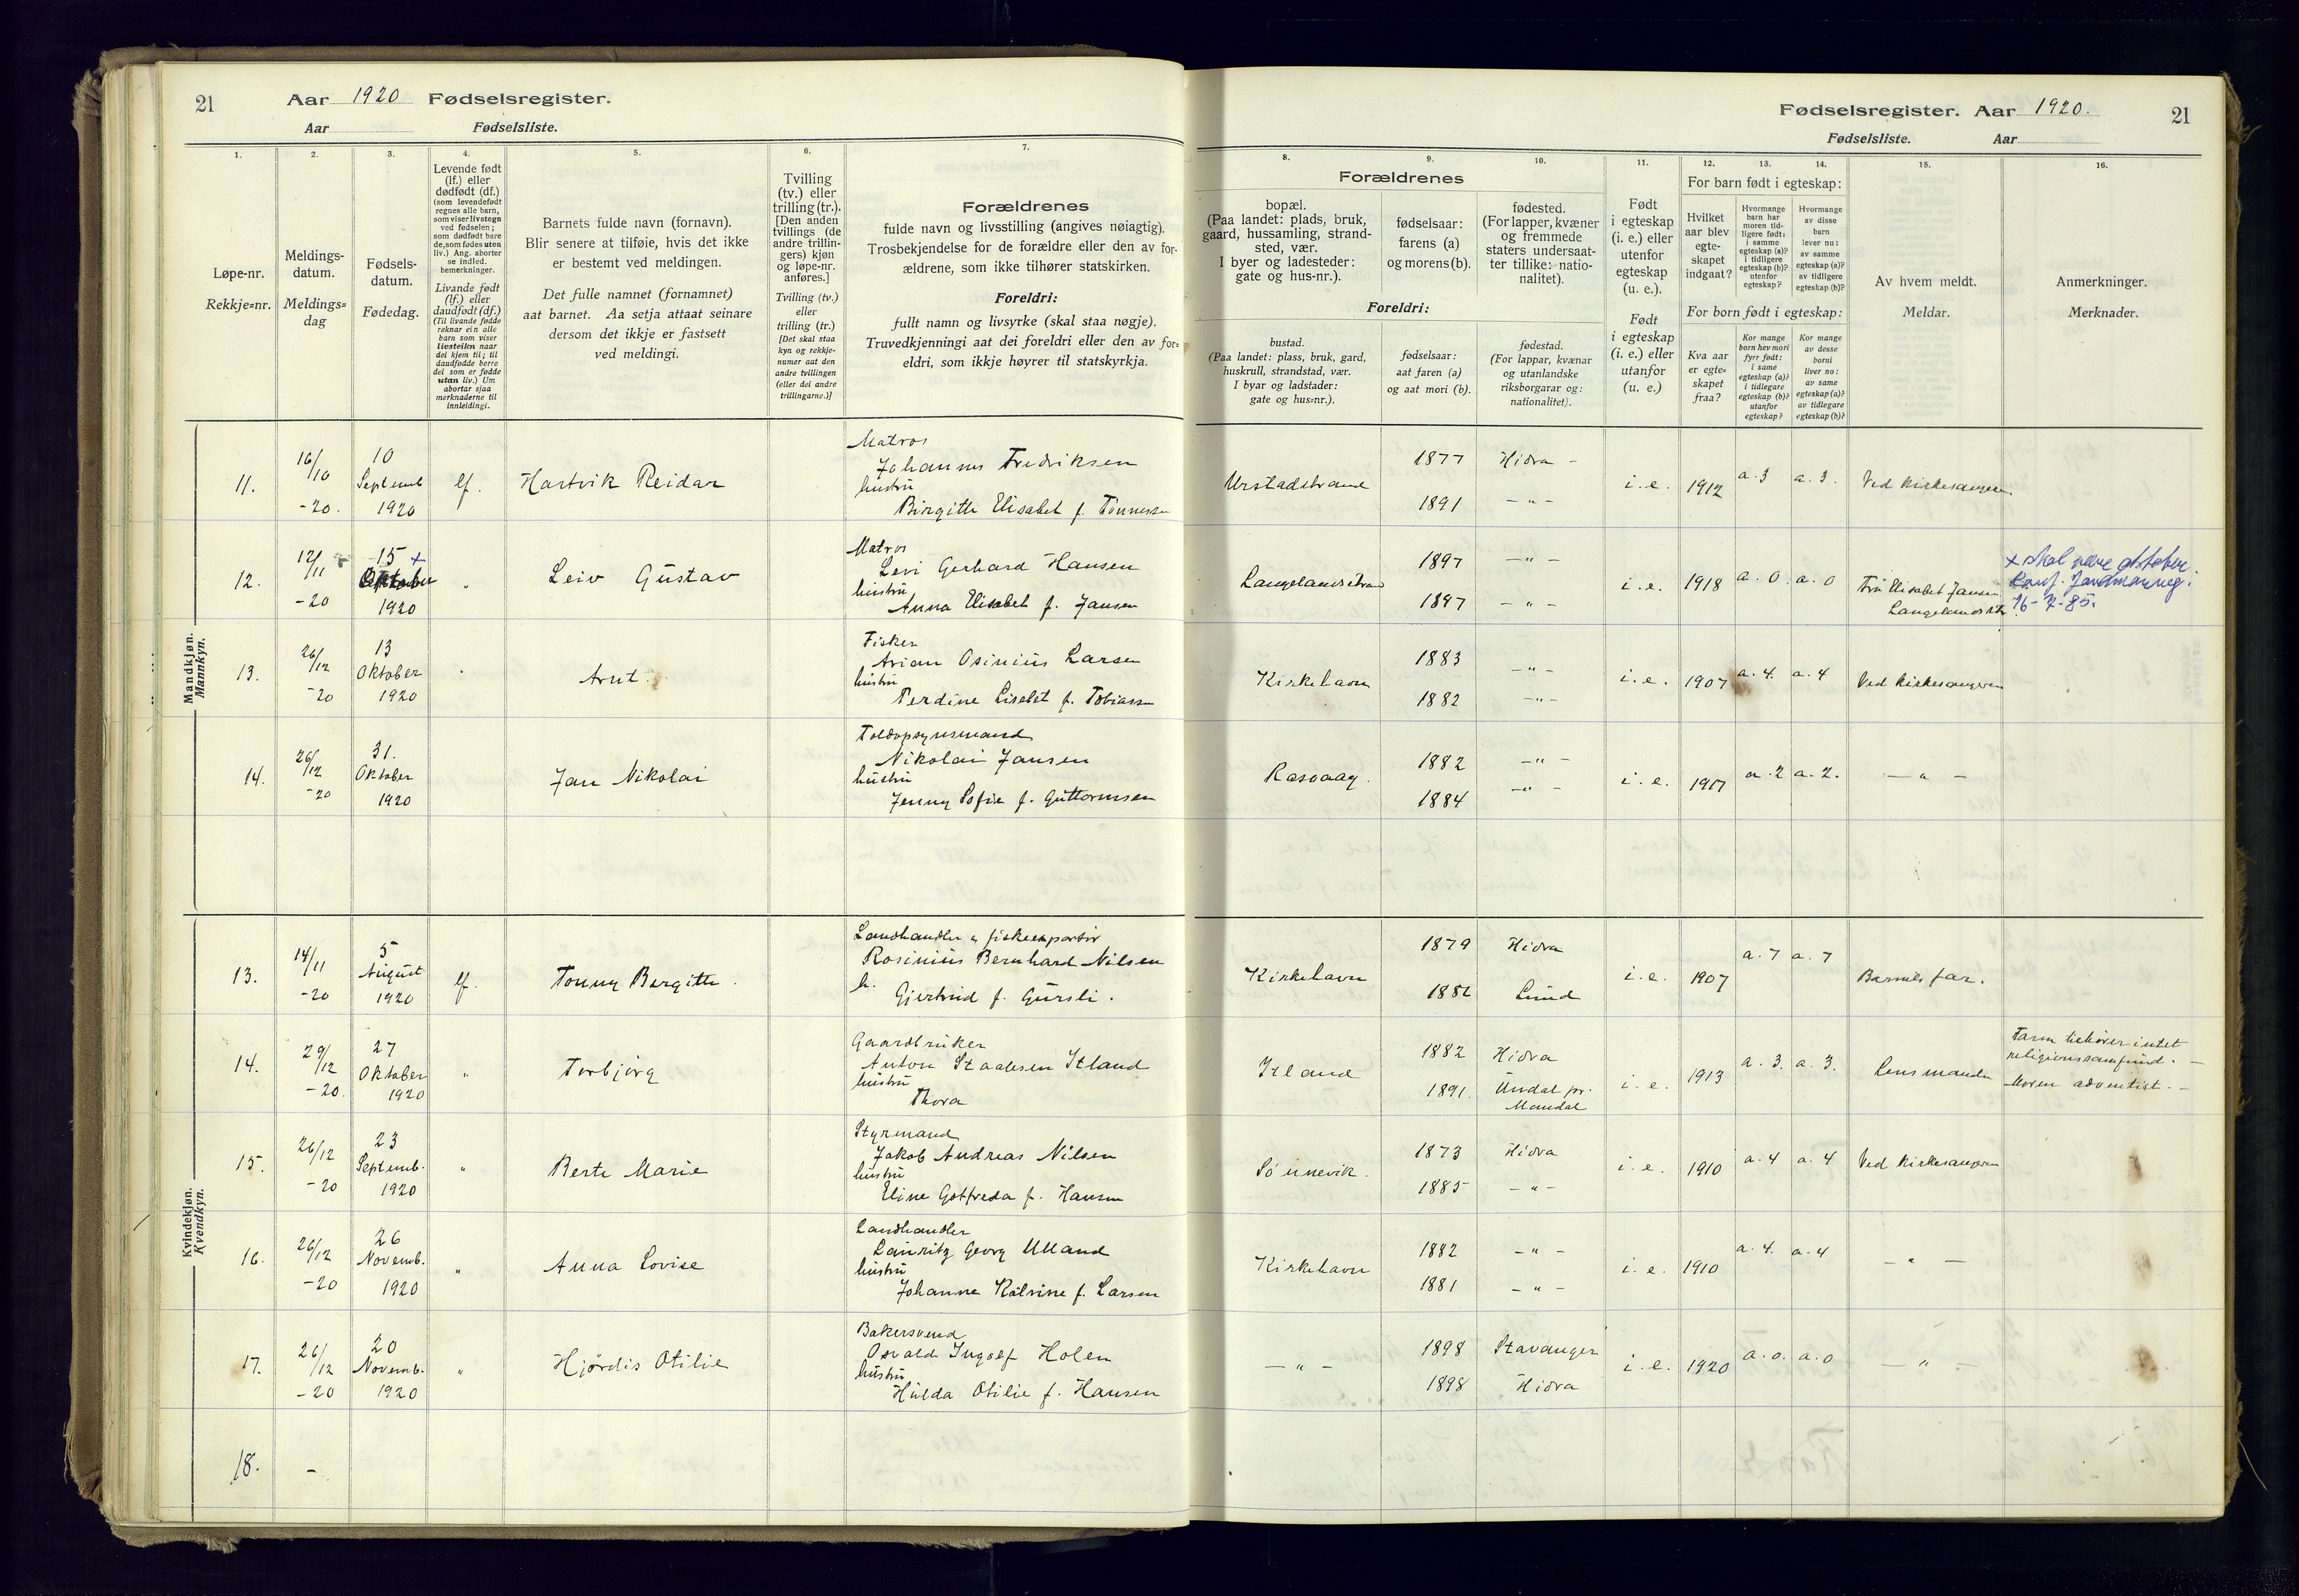 21 Aar 1920 Fødselsregister.
Aar Fødselsliste.
Fødselsregister. Aar 1920. 21
Fødselsliste. Aar
1.
Løpe-nr.
Rekkje=nr.
2.
Meldings-
datum.
Meldings=
dag
3.
Fødsels-
datum.
Fødedag.
4.
Levende født
(lf.) eller
dødfødt (df.)
(som levendefødt
regnes alle barn,
som viser livstegn
ved fødselen;
som dødfødt bare
de, som fødes uten
liv.) Ang. aborter
se indled.
bemerkninger.
Livande født
(lf.) eller
daudfødt (df.)
(Til livande fødde
reknar ein alle
barn som viser
livsteikn naar
dei kjem til; til
daudfødde berre
dei som er fødde
utan liv.) Um
abortar sjaa
merknaderne til
innleidingi.
5.
Barnets fulde navn (fornavn).
Blir senere at tilføie, hvis det ikke
er bestemt ved meldingen.
Det fulle namnet (fornamnet)
aat barnet. Aa setja attaat seinare
dersom det ikkje er fastsett
ved meldingi.
6.
Tvilling
(tv.) eller
trilling (tr.).
[Den anden
tvillings (de
andre trillin-
gers) kjøn
og løpe-nr.
anføres.]
Tvilling (tv.)
eller
trilling (tr.)
[Det skal staa
kyn og rekkje-
numer aat den
andre tvillingen
(eller dei andre
trillingarne.)]
7.
Forældrenes
fulde navn og livsstilling (angives nøiagtig).
Trosbekjendelse for de forældre eller den av for-
ældrene, som ikke tilhører statskirken.
Foreldri:
fullt namn og livsyrke (skal staa nøgje).
Truvedkjenningi aat dei foreldri eller den av for=
eldri, som ikkje høyrer til statskyrkja.
Forældrenes
8.
bopæl.
(Paa landet: plads, bruk,
gaard, hussamling, strand-
sted, vær.
I byer og ladesteder:
gate og hus-nr.).
9.
fødselsaar:
farens (a)
og morens (b).
10.
fødested.
(For lapper, kvæner
og fremmede
staters undersaat-
ter tillike: natio-
nalitet).
Foreldri:
bustad.
(Paa landet: plass, bruk, gard,
huskrull, strandstad, vær.
I byar og ladstader:
gate og hus=nr.).
fødselsaar:
aat faren (a)
og aat mori (b).
fødestad.
(For lappar, kvænar
og utanlandske
riksborgarar og:
nationalitet).
11.
Født
i egteskap
(i. e.) eller
utenfor
egteskap
(u. e.).
Født
i egteskap
(i. e.) eller
utanfor
(u. e.)
For barn født i egteskap:
12.
Hvilket
aar blev
egte-
skapet
indgaat?
13.
Hvormange
barn har
moren tid-
ligere født:
i samme
egteskap (a)?
i tidligere
egteskap (b)?
utenfor
egteskap?
14.
Hvormange
av disse
barn
lever nu:
av samme
egteskap (a)?
av tidligere
egteskap (b)?
For born født i egteskap:
Kva aar
er egte=
skapet
fraa?
Kor mange
born hev mori
fyrr født:
i same
egteskap (a)?
i tidlegare
egteskap (b)?
utanfor
egteskap?
Kor mange
av desse
borni
liver no:
av same
egteskap (a)?
av tidlegare
egteskap (b)?
15.
Av hvem meldt.
Meldar.
16.
Anmerkninger.
Merknader.
Mandkjøn.
Mannkyn.
11. 16/10 -20. 10 Septemb 1920 lf. Hartvik Reidar
Matros
Johannes Fredriksen
hustru
Birgitte Elisabet f. Tønnessen
Urstadstrand 1877 Hidra -
1891 - " -
i. e. 1912 a. 3 a. 3. Ved kirkesangeren
12. 12/11 -20 15 + Oktober 1920 " Leiv Gustav
Matros
Levi Gerhard Hansen
hustru
Anna Elisabet f. Jansen
Langelandstrand 1897 - " -
1897 - " -
i. e. 1918 a. 0. a. 0 Fru Elisabet Jansen
Langelandstr
+ skal være oktober.
16-7-85.
13. 26/12 -20 13 Oktober 1920 " Arnt.
Fisker
Arian Osinius Larsen
hustru
Perdine Lisebet f. Tobiassen
Kirkehavn 1883 - " -
1882 - " -
i. e. 1907 a. 4. a. 4 Ved kirkesangeren
14. 26/12 -20 31. Oktober 1920 Jan Nikolai
Toldopsynsmand
Nikolai Jansen
hustru
Jenny Sofie f. Guttormsen
Rasvaag. 1882 - " -
1884 - " -
i. e. 1917 a. 2 a. 2. - " -
Kvindekjøn.
Kvendkyn.
13. 14/11 -20 5 August 1920 lf. Tonny Bergitte.
Landhandler & fiskeexportør
Rosinius Bernhard Nilsen
h.
Gjertrud f. Gursli.
Kirkehavn 1879 Hidra
1882 Lund
i. e. 1907 a. 7 a. 7 Barnets far.
14. 29/12 -20. 27 Oktober 1920 " Torbjørg
Gaardbruker
Anton Staalesen Itland
hustru
Thora
Itland 1882 Hidra
1891. Undal pr.
Mandal
i. e. 1913 a. 3. a. 3. Lensmanden
Faren tilhører intet
religionssamfund. -
Moren adventist. -
15. 26/12 -20 23 Septemb. 1920 " Berte Marie
Styrmand
Jakob Andreas Nilsen
hustru
Eline Gotfreda f. Hansen
Sønnevik. 1873 Hidra
1885 - " -
i. e. 1910 a. 4 a. 4 Ved kirkesangeren
16. 26/12 -20 26 Novemb. 1920 " Anna Lovise
Landhandler
Lauritz Georg Ulland
hustru
Johanne Katrine f. Larsen
Kirkehavn 1882 - " -
1881 - " -
i. e. 1910 a. 4. a. 4 - " -
17. 26/12 -20 20 Novemb. 1920 " Hjørdis Otilie
Bakersvend
Osvald Ingolf Holen
hustru
Hulda Otilie f. Hansen
- " - 1898 Stavanger
1898 Hidra
i. e. 1920 a. 0. a. 0 - " -
18. -